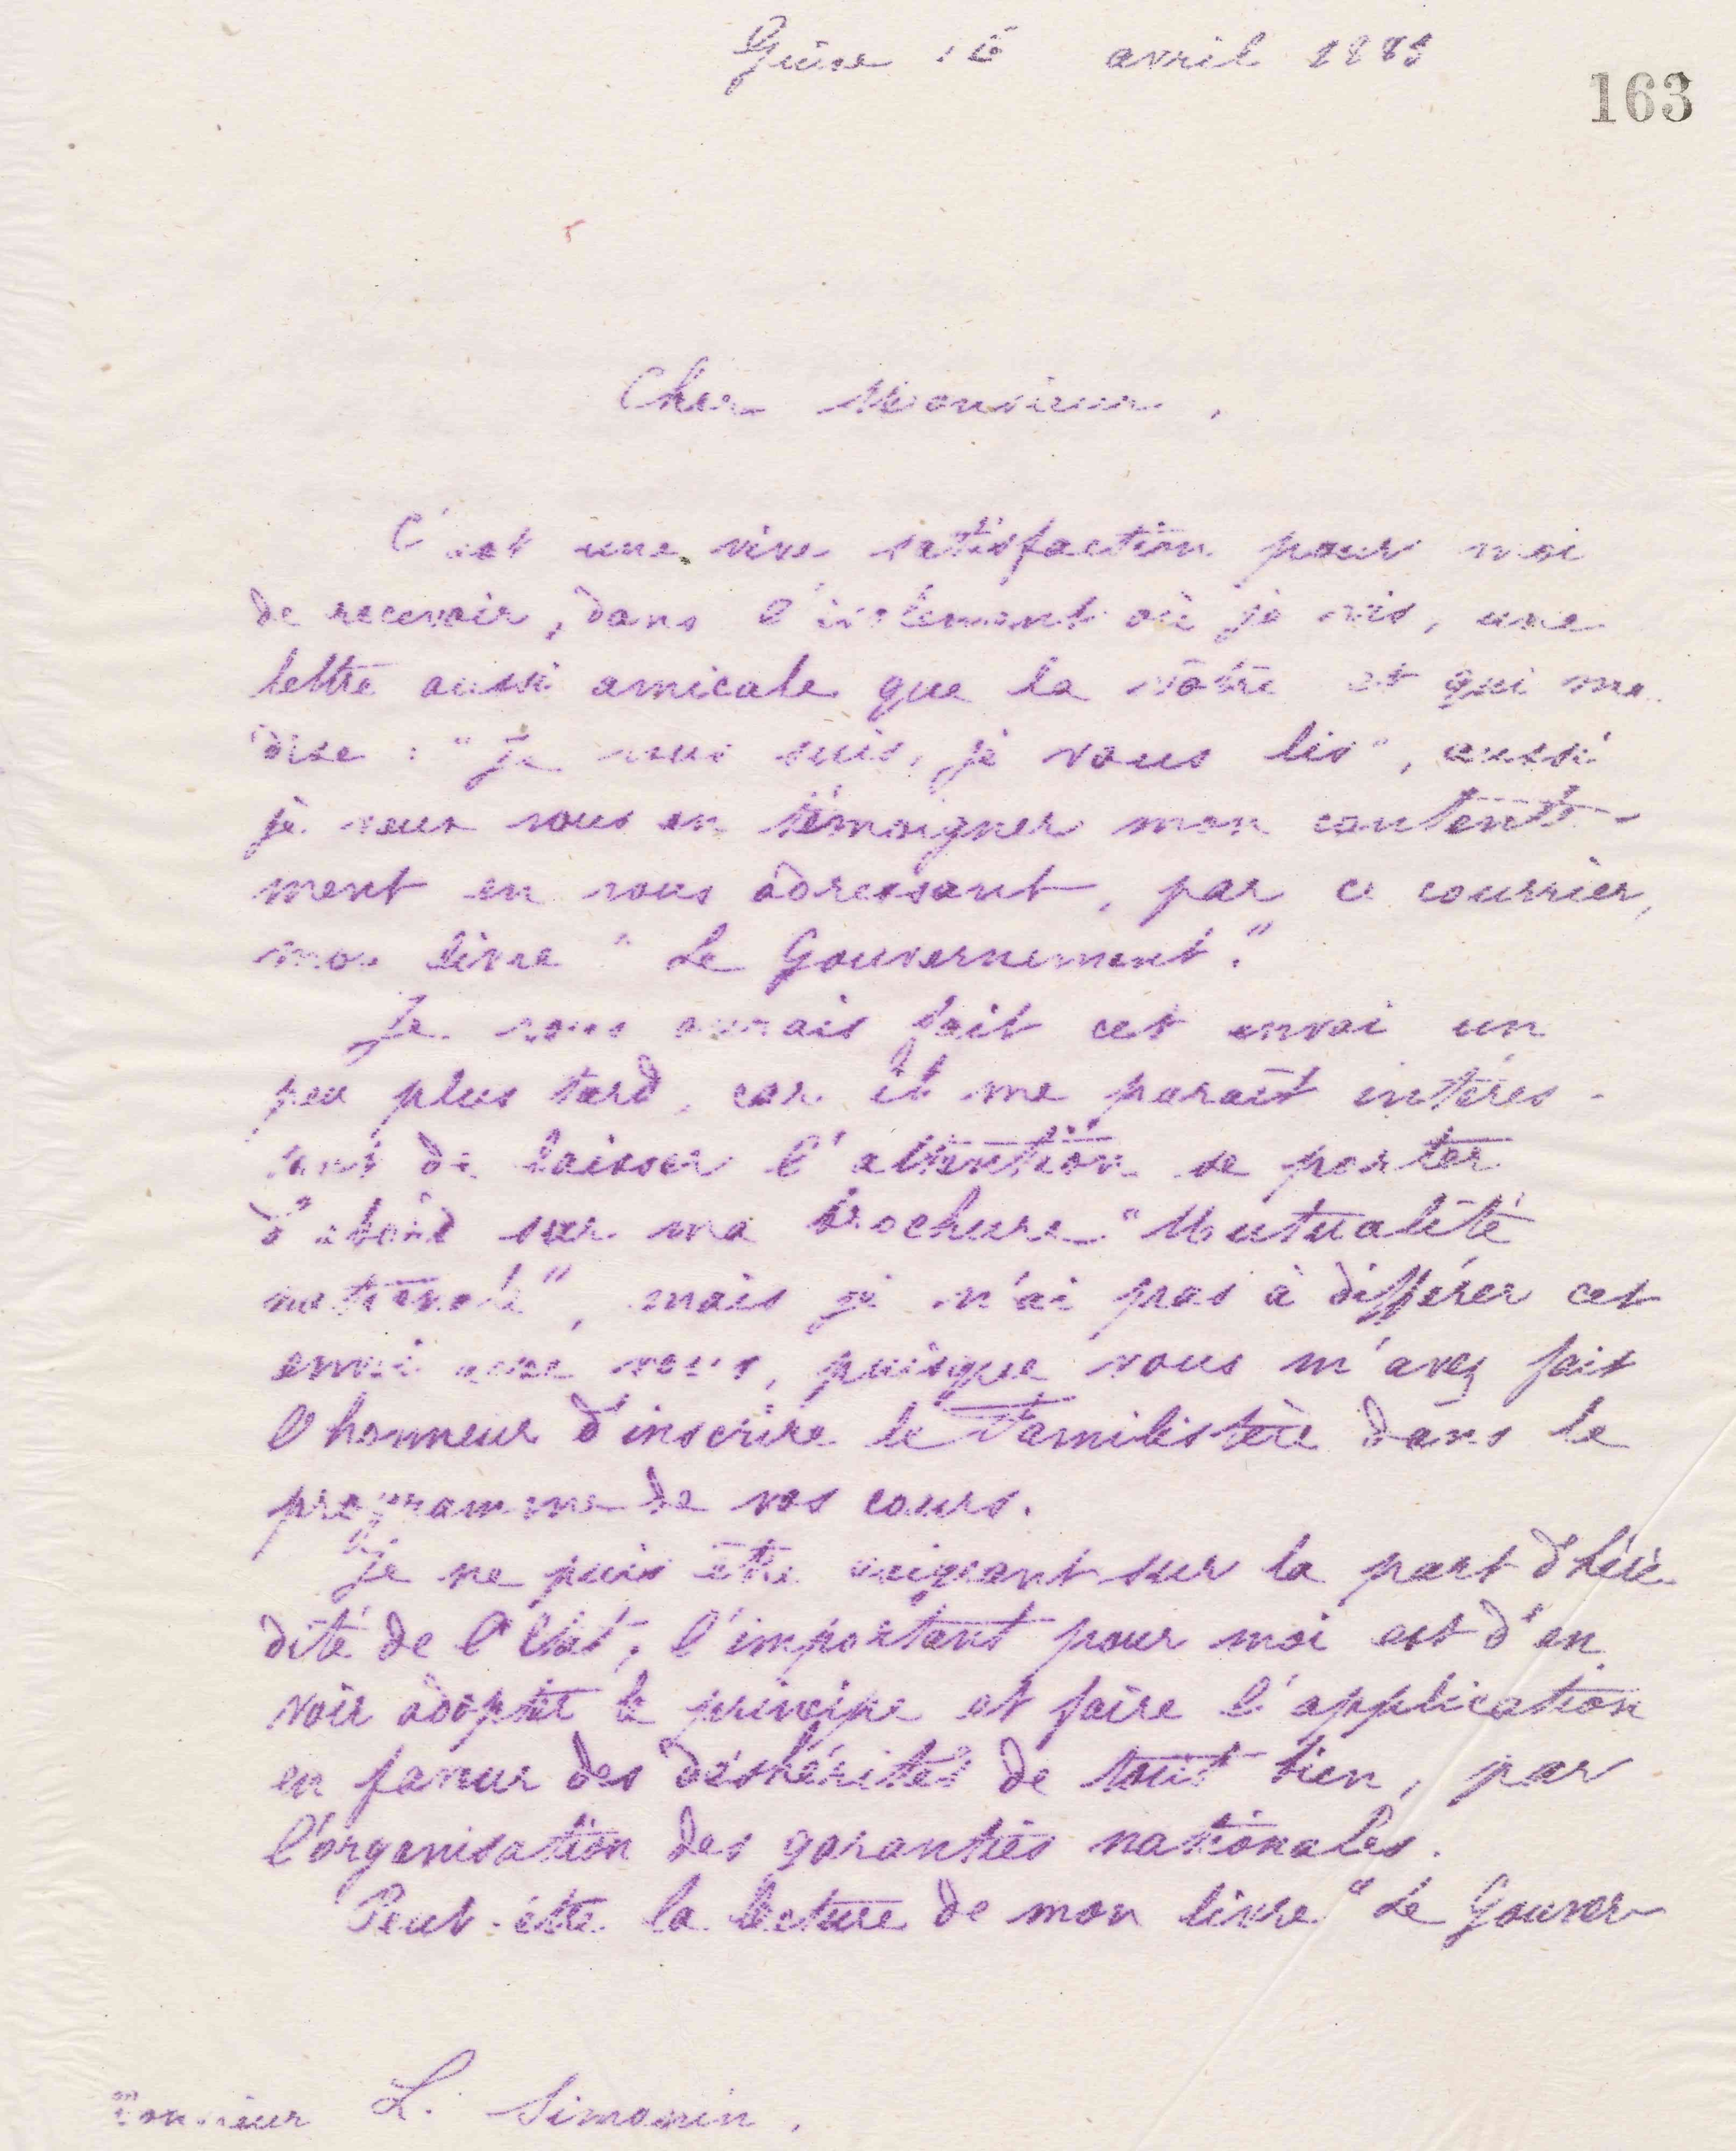 Guise 16 avril 1883
163
Cher Monsieur,
C'est une vive satisfaction pour moi
de recevoir, dans l'isolement où je vis, une
lettre aussi amicale que la vôtre et qui me
dise : "Je vous suis, je vous lis", aussi
je veux vous en témoigner mon contente-
ment en vous adressant, par ce courrier,
mon livre "Le Gouvernement".
Je vous aurais fait cet envoi un
peu plus tard, car il me paraît intéres-
sant de laisser l'attention se porter
d'abord sur ma brochure "Mutualité
nationale", mais je n'ai pas à différer cet
envoi avec vous, puisque vous m'avez fait
l'honneur d'inscrire le Familistère dans le
programme de vos cours.
Je ne puis être exigeant sur la part d'héré-
dité de l'Etat, l'important pour moi est d'en
voir adopter le principe et faire l'application
en faveur des déshérités de tout bien, par
l'organisation des garanties nationales.
Peut-être la lecture de mon livre "Le Gouver-
Monsieur L. Simonin,